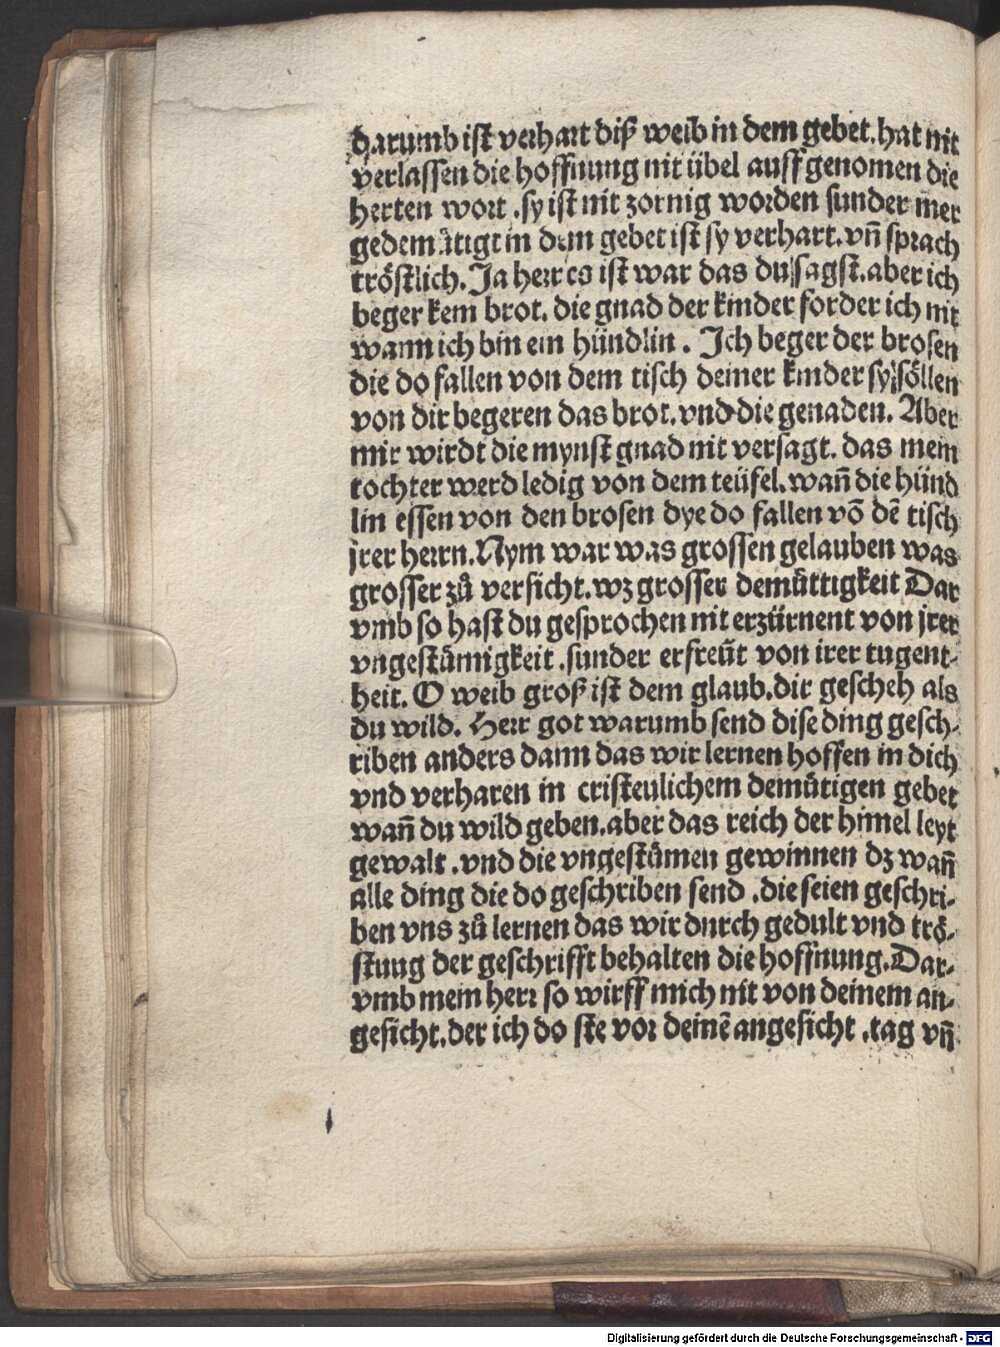 darumb ist verhart diß weib in dem gebet. hat nit
verlassen die hoffnung nit übel auff genomen die
herten wort .sy ist nit zornig worden sunder mer
gedemütigt in dem gebet ist sy verhart. vñ sprach
tröstlich. Ja herr es ist war das du sagst. aber ich
beger kein brot. die gnad der kinder forder ich nit
wann ich bin ein hündlin . Ich beger der brosen
die do fallen von dem tisch deiner kinder sy söllen
von dir begeren das brot. vnd die genaden. Aber
mir wirdt die mynst gnad nit versagt. das mein
tochter werd ledig von dem teüfel. wañ die hünd
lin essen von den brosen dye do fallen võ dē tisch
jrer herrn. Nym war was grossen gelauben was
grosser zů versicht. wz grosser demüttigkeit Dar
vmb so hast du gesprochen nit erzürnent von jrer
vngestümigkeit .sunder erfreüt von irer tugent-
heit. O weib groß ist dem glaub. dir gescheh als
du wild. Herr got warumb send dise ding gesch-
riben anders dann das wir lernen hoffen in dich
vnd verharen in cristeulichem demütigen gebet
wañ du wild geben. aber das reich der himel leyt
gewalt .vnd die vngestümen gewinnen dz wañ
alle ding die do geschriben send .die seien geschri-
ben vns zů lernen das wir durch gedult vnd trö-
stung der geschrifft behalten die hoffnung. Dar-
vmb mein herr so wirff mich nit von deinem an-
gesicht. der ich do ste vor deinē angesicht .tag vñ
Digitalisierung gefördert durch die Deutsche Forschungsgemeinschaft - DFG